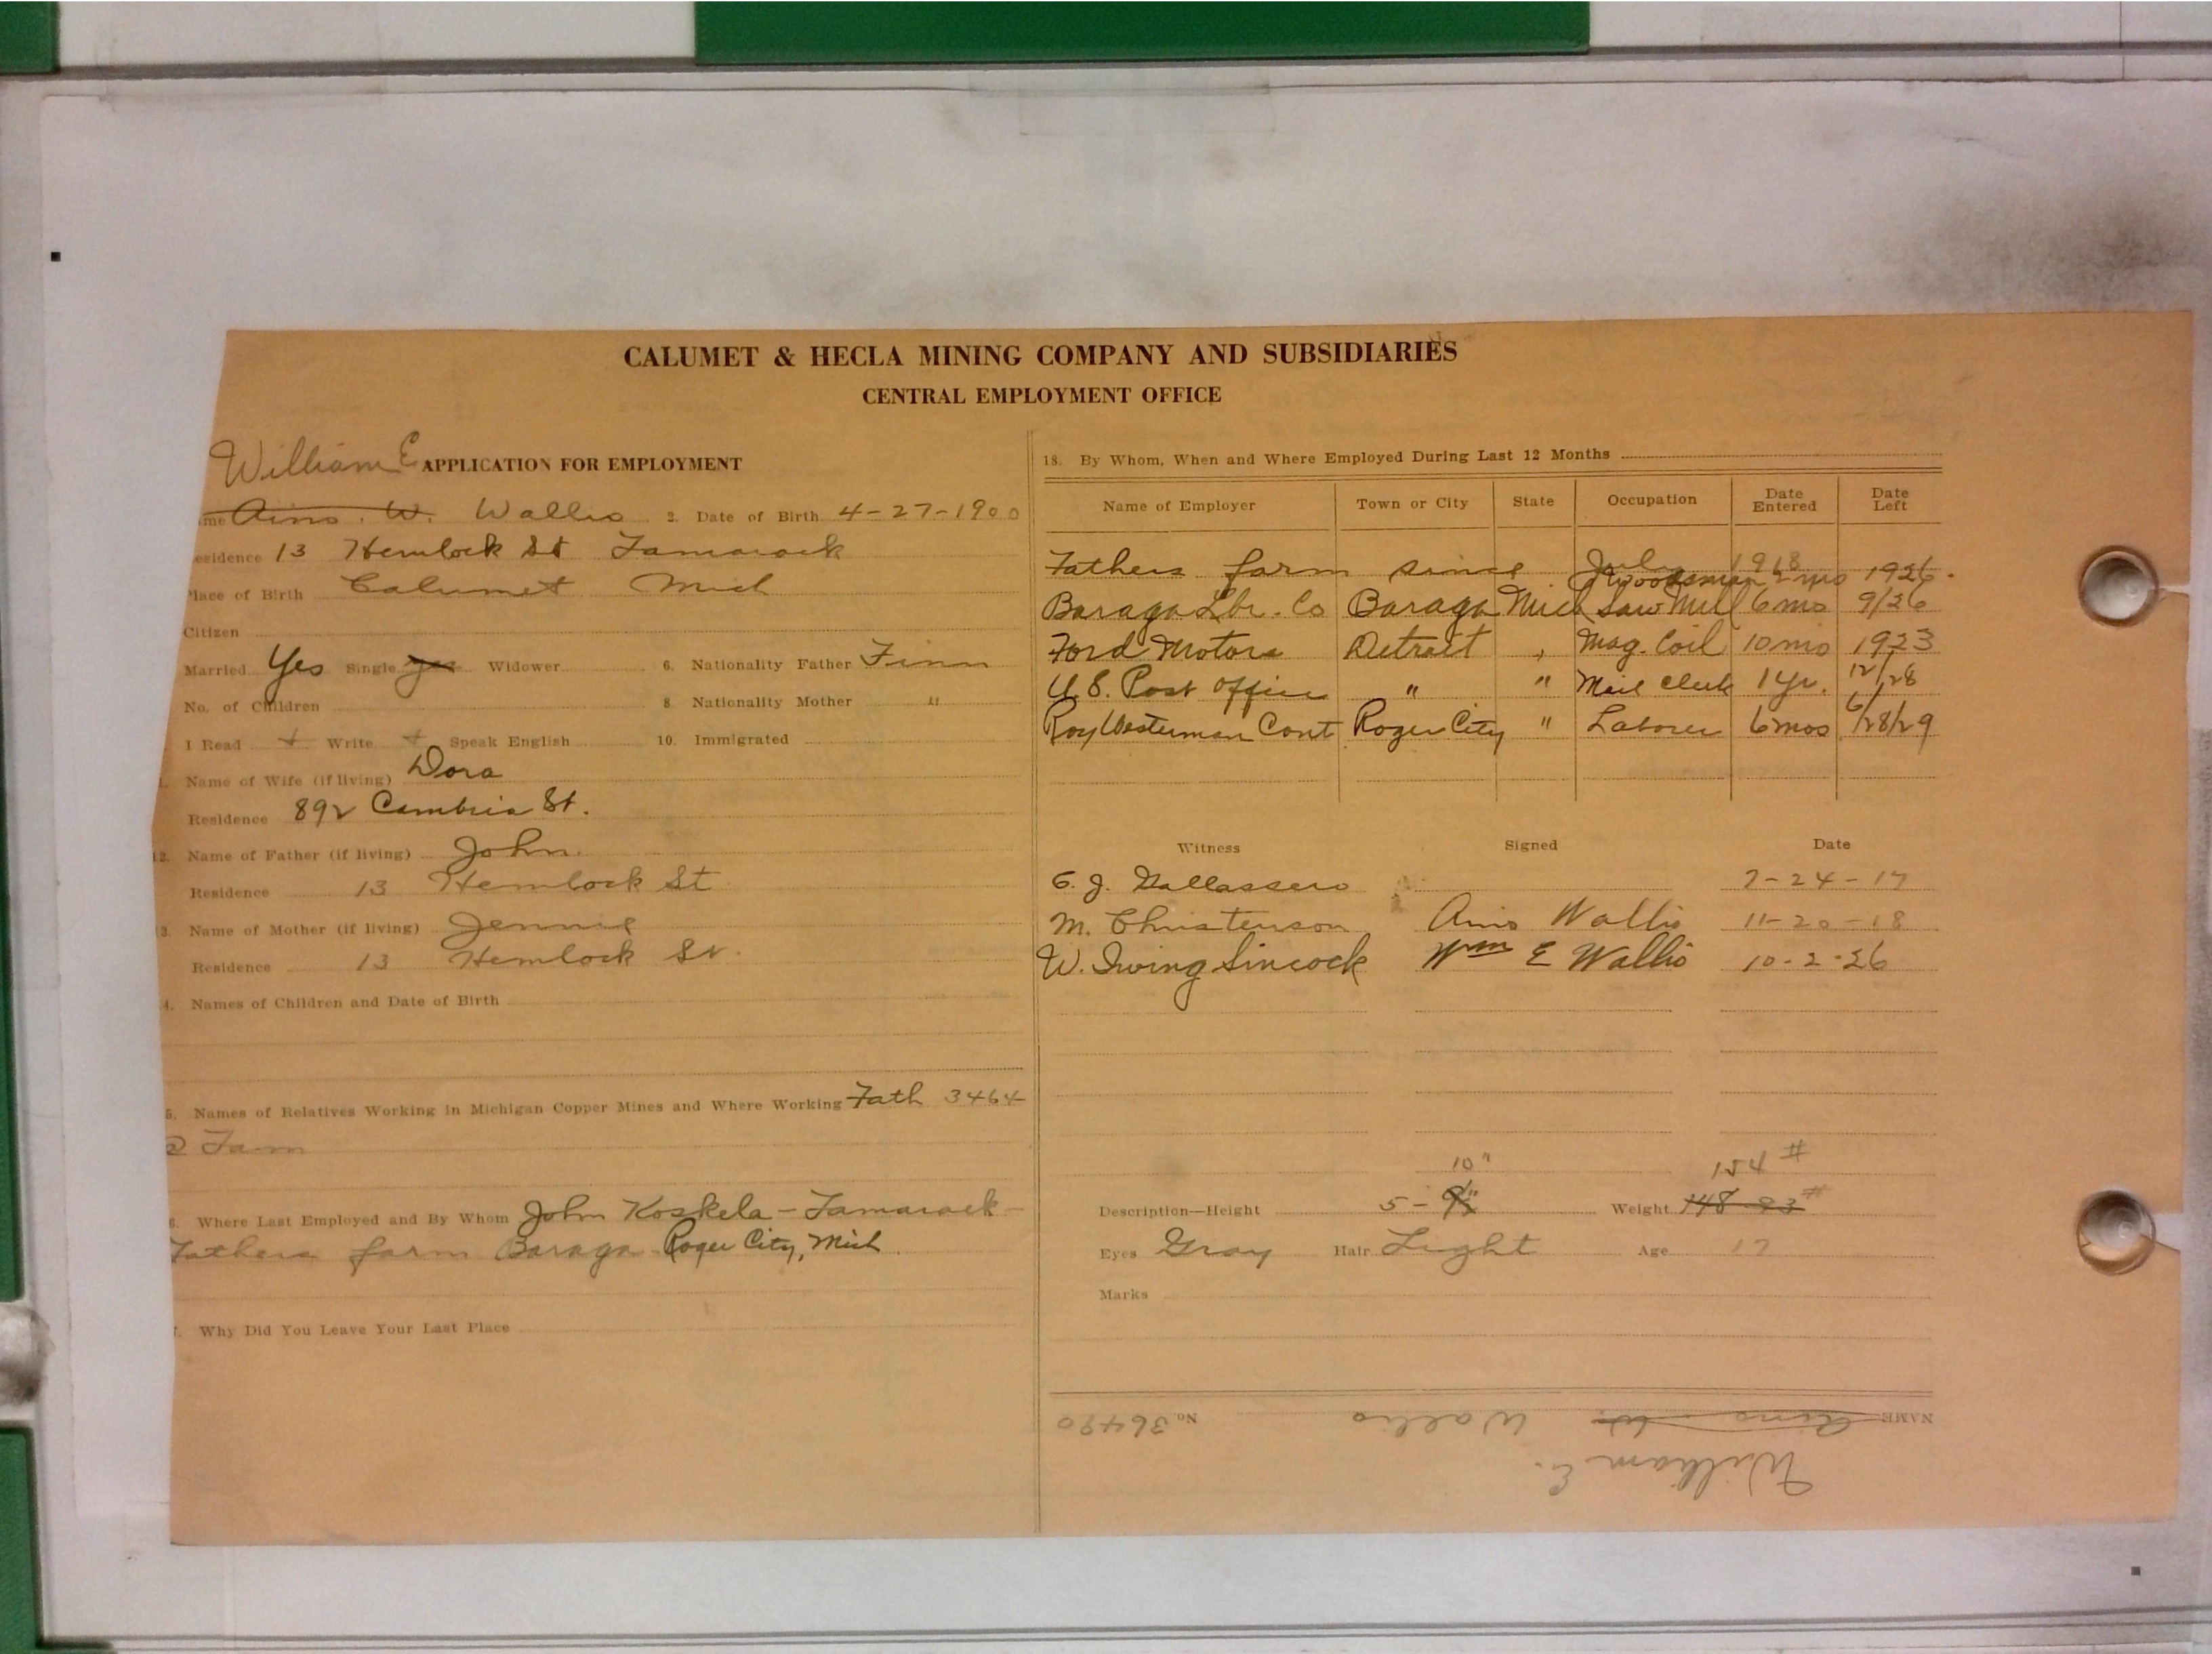 CALUMET & HECLA MINING COMPANY AND SUBSIDIARIES
CENTRAL EMPLOYMENT OFFICE
William E
APPLICATION FOR EMPLOYMENT
me Aino. W. Wallio 2. Date of Birth 4-27-1900
esidence 13 Hemlock St Tamarack
Place of Birth Calumet Mich
Citizen
Married Yes Single yes Widower 6. Nationality Father Finn
No. of Children 8 Nationality Mother "
I Read + Write + Speak English 10. Immigrated
Name of Wife (if living) Dora
Residence 892 Cambria St.
12. Name of Father (if living) John.
Residence 13 Hemlock St
3. Name of Mother (if living) Jennie
Residence 13 Hemlock St.
4. Names of Children and Date of Birth
5. Names of Relatives Working in Michigan Copper Mines and Where Working Fath 3464
@ Tam
6. Where Last Employed and By Whom John Koskela - Tamarack -
Fathers farm Baraga Roger City, Mich.
7. Why Did You Leave Your Last Place
18. By Whom, When and Where Employed During Last 12 Months
Name of Employer Town or City State Occupation Date Entered Date Left
Fathers farm since July 1918 1926.
Woodsman 2 mos
Baraga Lbr. Co Baraga Mich Saw Mill 6 mo 9/26
Ford Motors Detroit " Mag. Coil 10 mo 1923
U.S. Post Office " " Mail Clerk 1 yr. 12/28
Roy Westerman Cont Roger City " Laborer 6 mos 6/28/29
Witness Signed Date
G. J. 7-24-17
M. Christenson Aino Wallio 11-20-18
W. Irving Sincock Wm E Wallio 10-2-26
10" 154 #
Description—Height 5 - 9½" Weight 148 93 #
Eyes Gray Hair Light Age 17
Marks
NAME Aino W. Wallio No. 36490
William E.